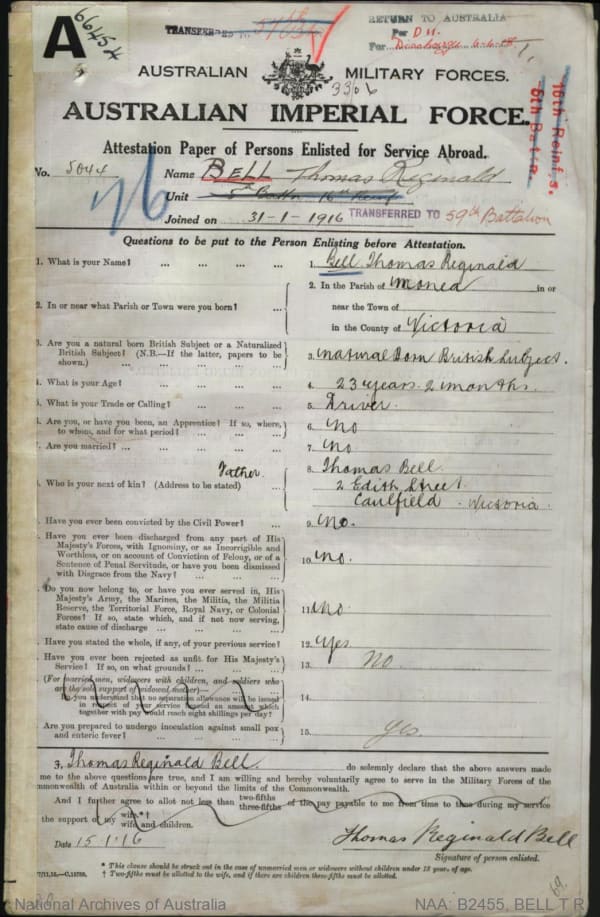 A
6645A
TRANSFERRED TO
RETURN TO AUSTRALIA
Per D 11.
For
AUSTRALIAN MILITARY FORCES.
3306
AUSTRALIAN IMPERIAL FORCE.
16th Reinf's,
5th Bat'n.
Attestation Paper of Persons Enlisted for Service Abroad.
No. 5044 Name BELL Thomas Reginald
Unit 5th Battn 16th Reinf
Joined on 31-1-1916 TRANSFERRED TO 59th Battalion
Questions to be put to the Person Enlisting before Attestation.
1. What is your Name? ... ... ... ... 1. Bell Thomas Reginald
2. In or near what Parish or Town were you born? ...
2. In the Parish of Monea in or
near the Town of
in the County of Victoria
3. Are you a natural born British Subject or a Naturalized
British Subject? (N.B.—If the latter, papers to be
shown.) ... ... ... ... ...
3. Natural Born British Subject.
4. What is your Age? ... ... ... ... 4. 23 years 2 months.
5. What is your Trade or Calling? ... ... ... 5. Driver.
6. Are you, or have you been, an Apprentice? If so, where,
to whom, and for what period? ... ... ...
6. No
7. Are you married? ... ... ... ... 7. No
Father.
Who is your next of kin? (Address to be stated) ...
8. Thomas Bell
2 Edith Street
Caulfield . Victoria.
Have you ever been convicted by the Civil Power? ... 9. No.
Have you ever been discharged from any part of His
Majesty's Forces, with Ignominy, or as Incorrigible and
Worthless, or on account of Conviction of Felony, or of a
Sentence of Penal Servitude, or have you been dismissed
with Disgrace from the Navy? ... ... ...
10. No.
Do you now belong to, or have you ever served in, His
Majesty's Army, the Marines, the Militia, the Militia
Reserve, the Territorial Force, Royal Navy, or Colonial
Forces? If so, state which, and if not now serving,
state cause of discharge ... ... ... ...
11. No
Have you stated the whole, if any, of your previous service? 12. Yes
Have you ever been rejected as unfit for His Majesty's
Service? If so, on what grounds? ... ... ...
13. No.
(For married men, widowers with children, and soldiers who
are the sole support of widowed mother)—
Do you understand that no separation allowance will be issued
in respect of your service beyond an amount which
together with pay would reach eight shillings per day?
14.
Are you prepared to undergo inoculation against small pox
and enteric fever? ... ... ... ...
15. Yes.
I, Thomas Reginald Bell do solemnly declare that the above answers made
me to the above questions are true, and I am willing and hereby voluntarily agree to serve in the Military Forces of the
mmonwealth of Australia within or beyond the limits of the Commonwealth.
And I further agree to allot not less than two-fifths three-fifths of the pay payable to me from time to time during my service
the support of my wife.* †
wife and children.
Date 15/1/16 Thomas Reginald Bell
Signature of person enlisted.
* This clause should be struck out in the case of unmarried men or widowers without children under 18 years of age.
† Two-fifths must be allotted to the wife, and if there are children three-fifths must be allotted.
National Archives of Australia
NAA: B2455, BELL T R